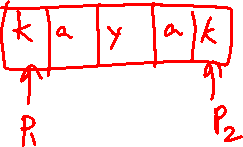 k a y a k
P1 P2